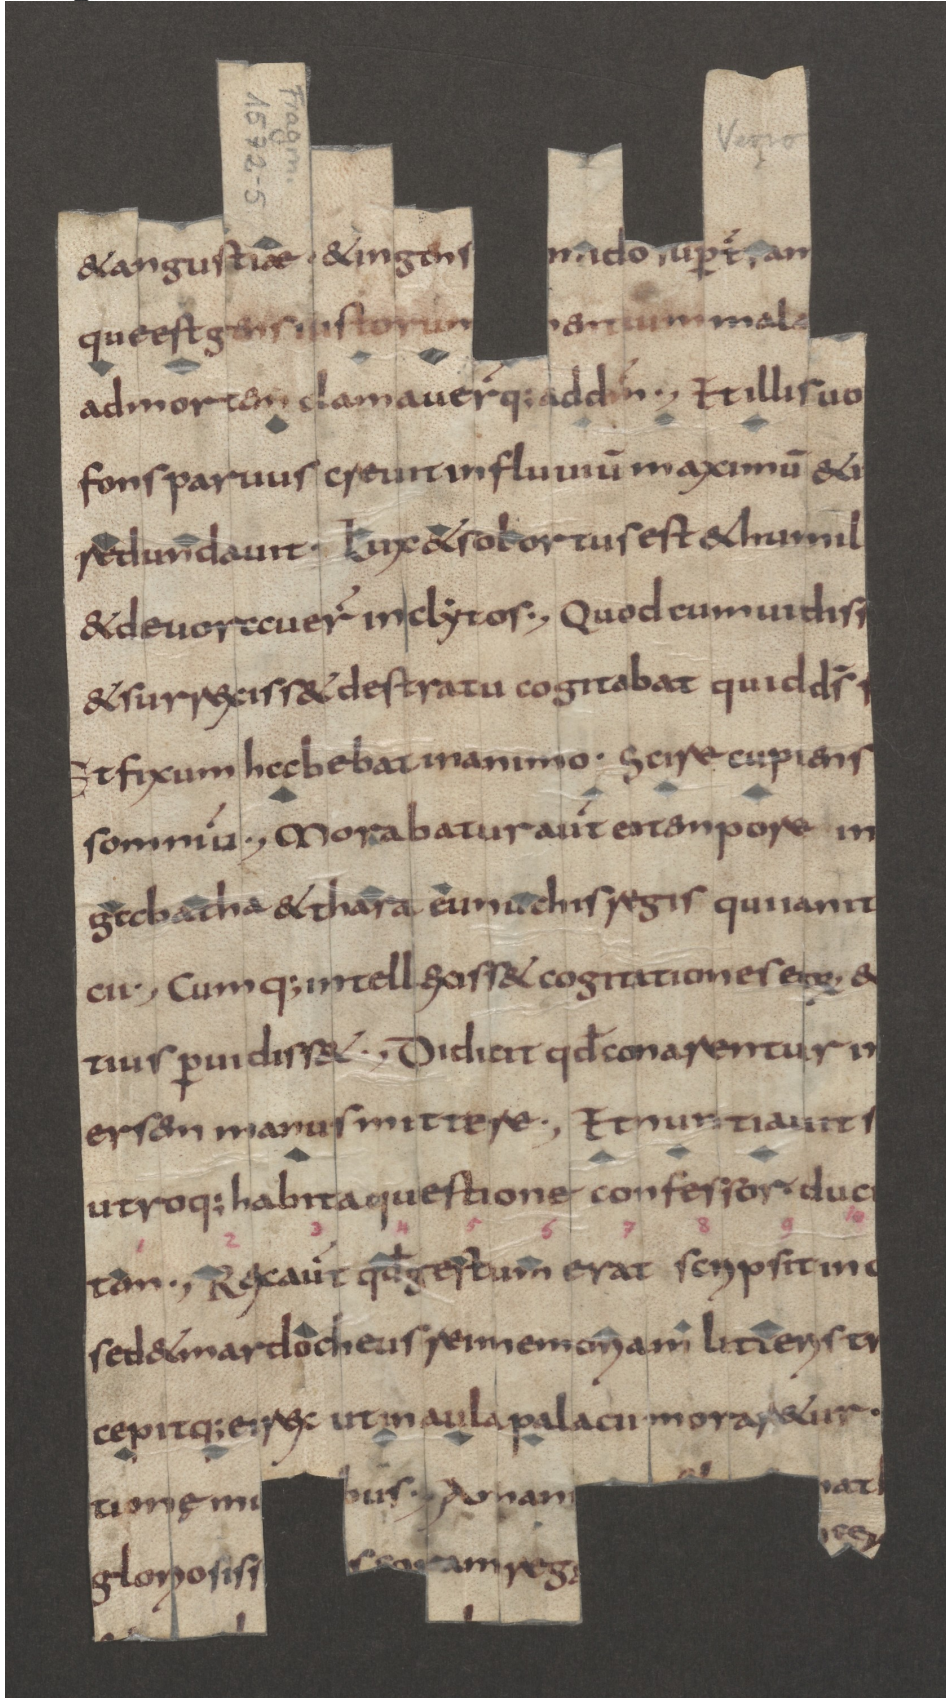 Fragm.
1572-5
Vegio
& angustiae · & ingens mido sup t́ an
que est gens iustorum entium mala
ad mortem clamauer̄q; ad dm̄ ., Et illis uo
fons paruus creuit in fluuiū maximū & i
redundauit · Lux & sol ortus est & humil
& deuorecuer̄ inclẏtos ., Quod cum uidiss
& surrexiss& de stratu cogitabat quid ds̄
Et fixum hecbebat in animo · Scire cupiens
somniū ., Morabatur aut́ eo tempore in
gecbatha & thara eunuchis regis qui ianit
cii ., Cumq; intellexiss& cogitationes eoꝝ &
tius ꝑuidiss& ., Didicit qđ conarentur in
ersem manus mittere ., Et nuntiauit s
utroq; habita questione confessor · duci
1 2 3 4 5 6 7 8 9 10
tem ., Rex aut́ qđ gestum erat scripsit in c
sed & mardocheus rei memoriam litteris tr
cepitq; ei rex ut in aula palacii morar&ur ·
tione bus ., Aman
gloriosiss coram reg